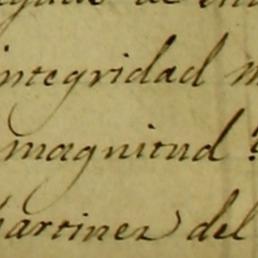 de
integridad
magnitud
Martinez del